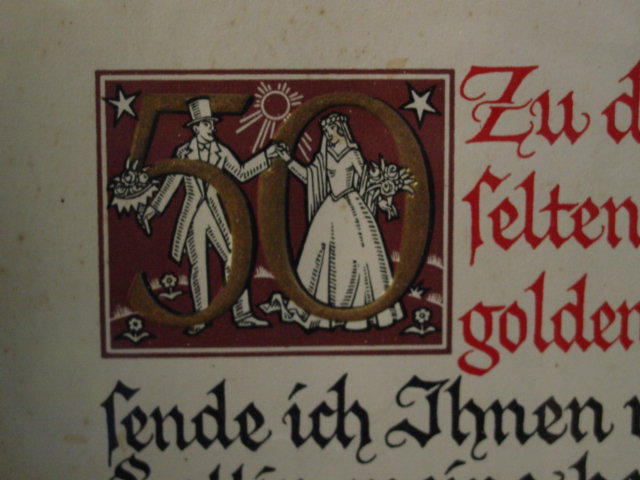 50
Zu d
selten
golden
sende ich Ihnen u